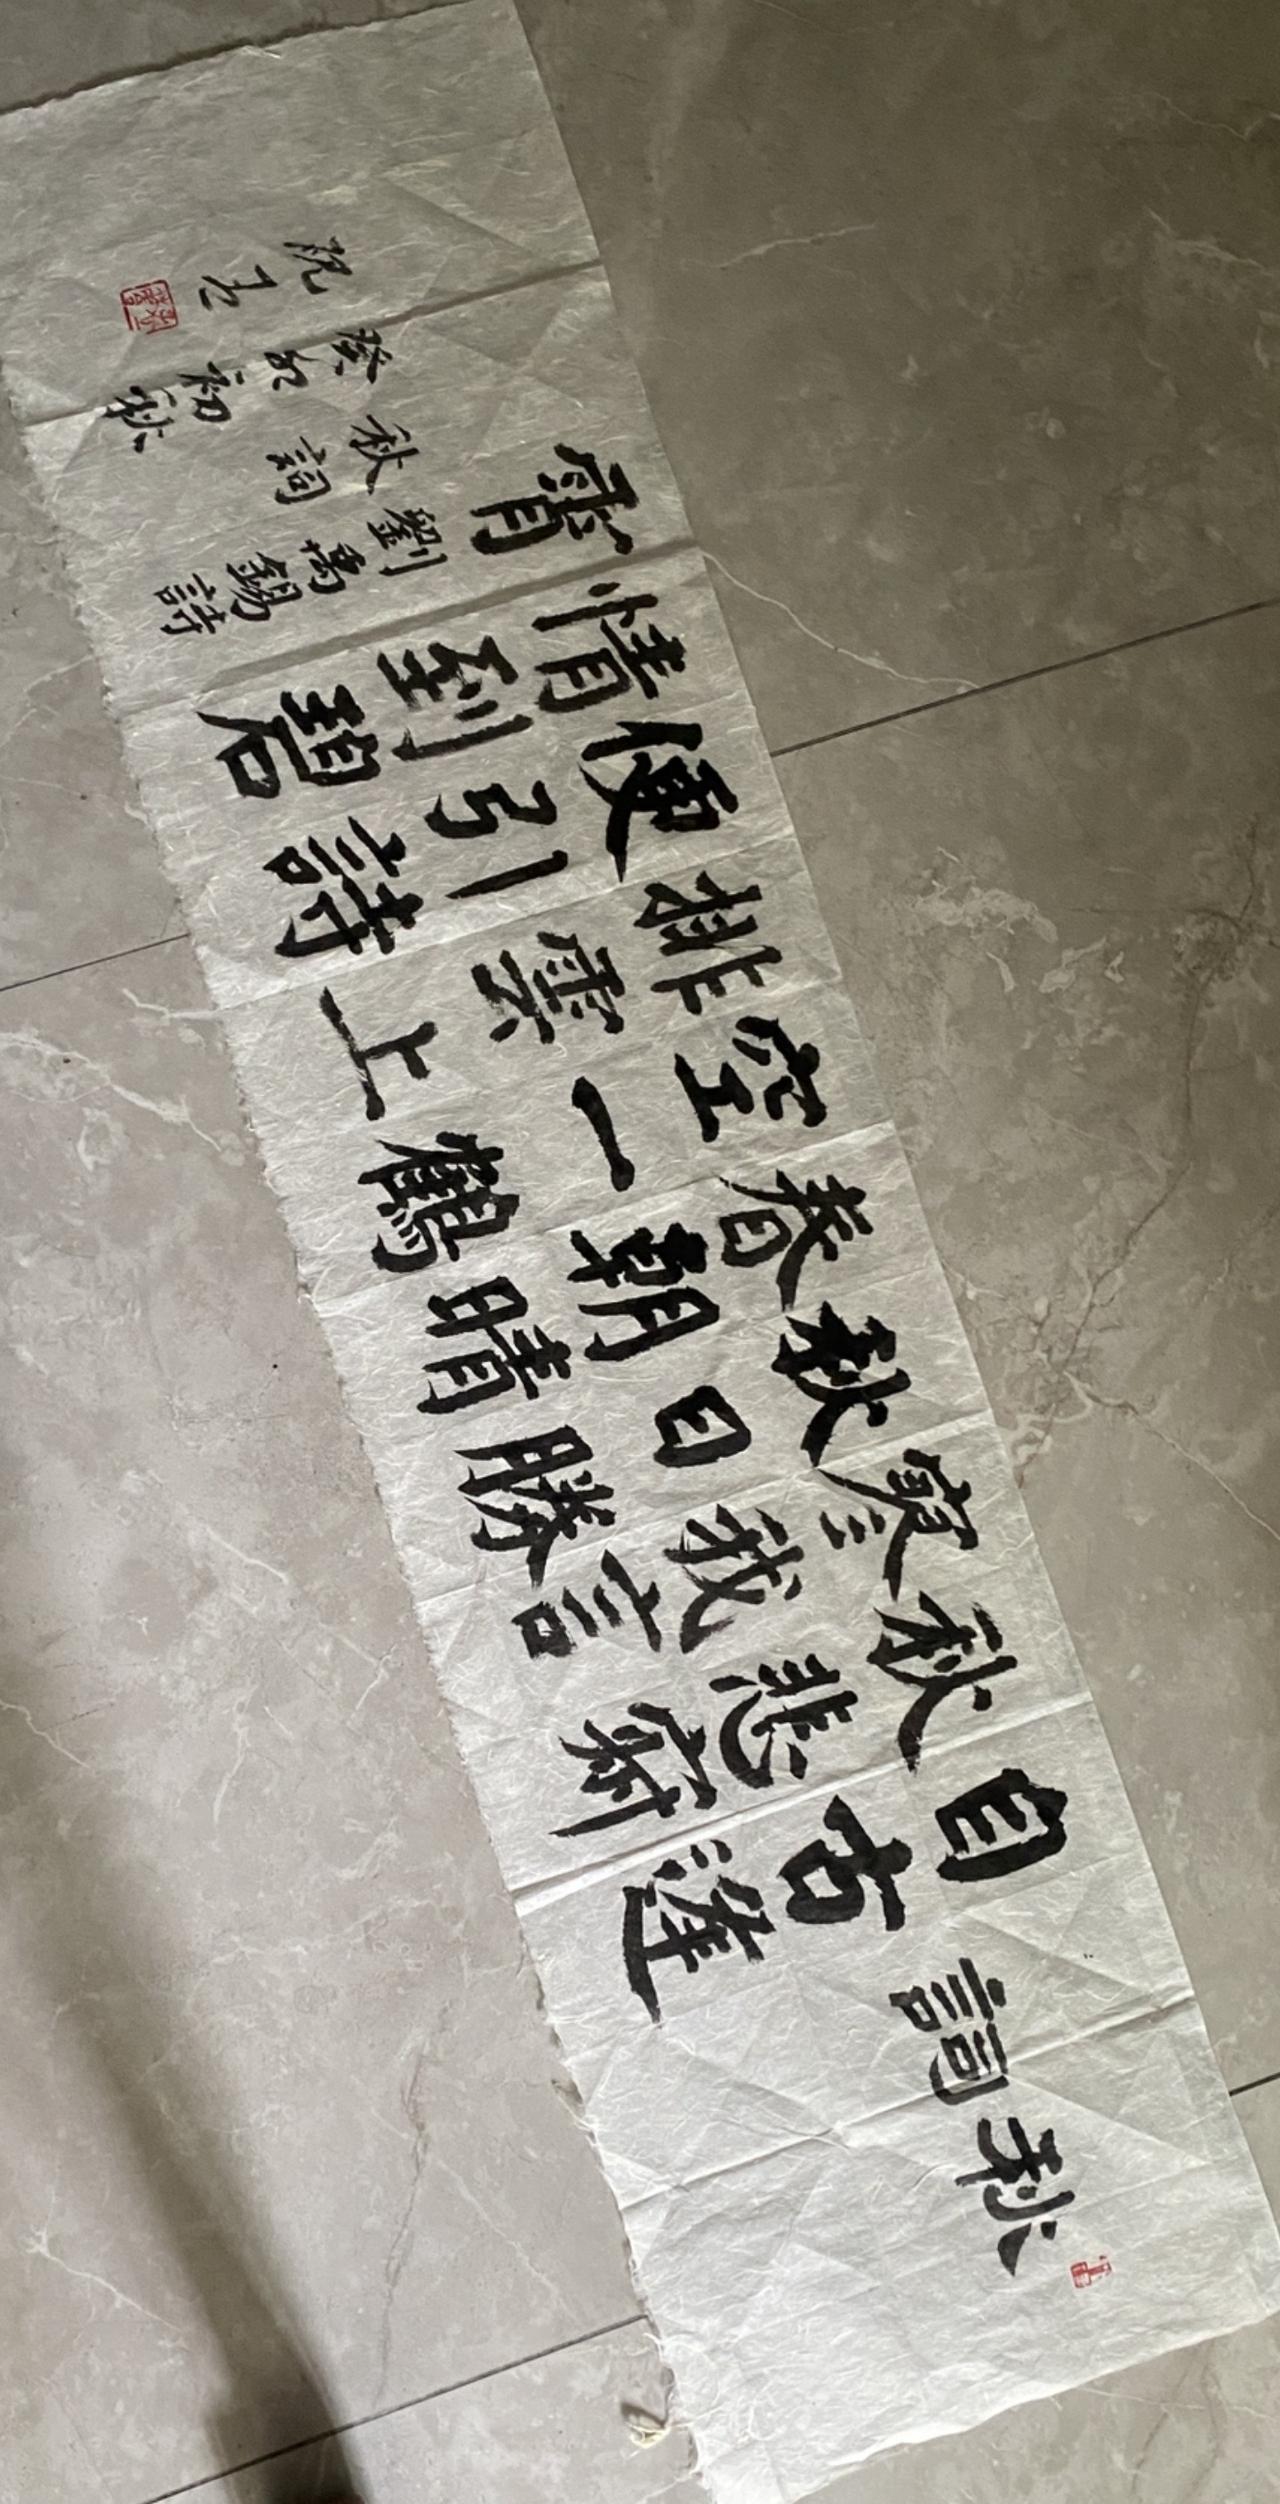 秋詞
自古逢
秋悲寂
寥我言
秋日勝
春朝晴
空一鶴
排雲上
便引詩
情到碧
霄
劉禹錫詩
秋詞
癸卯初秋
祝